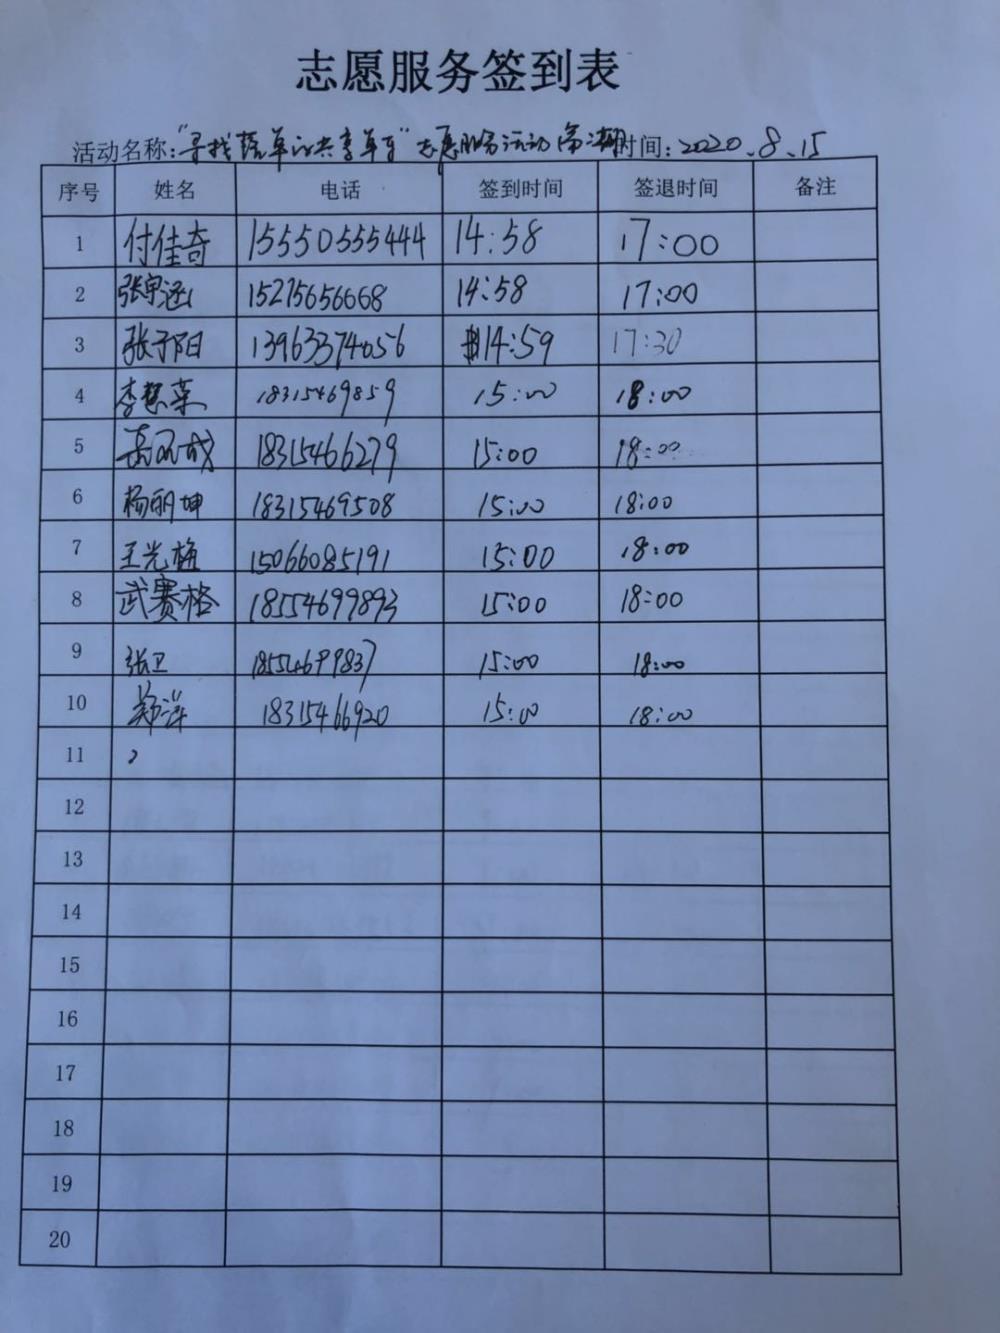 志愿服务签到表
活动名称:“寻找落单的共享单车”志愿服务活动 时间:2020.8.15
序号 姓名 电话 签到时间 签退时间 备注
1 付佳奇 15550555444 14:58 17:00
2 张宇涵 15275656668 14:58 17:00
3 张子阳 13963374056 14:59 17:30
4 李慧荣 18315469859 15:00 18:00
5 18315466279 15:00 18:00
6 杨丽坤 18315469508 15:00 18:00
7 王光梅 15066085191 15:00 18:00
8 武赛格 18554699893 15:00 18:00
9 张卫 18554699837 15:00 18:00
10 郑萍 18315466920 15:00 18:00
11
12
13
14
15
16
17
18
19
20